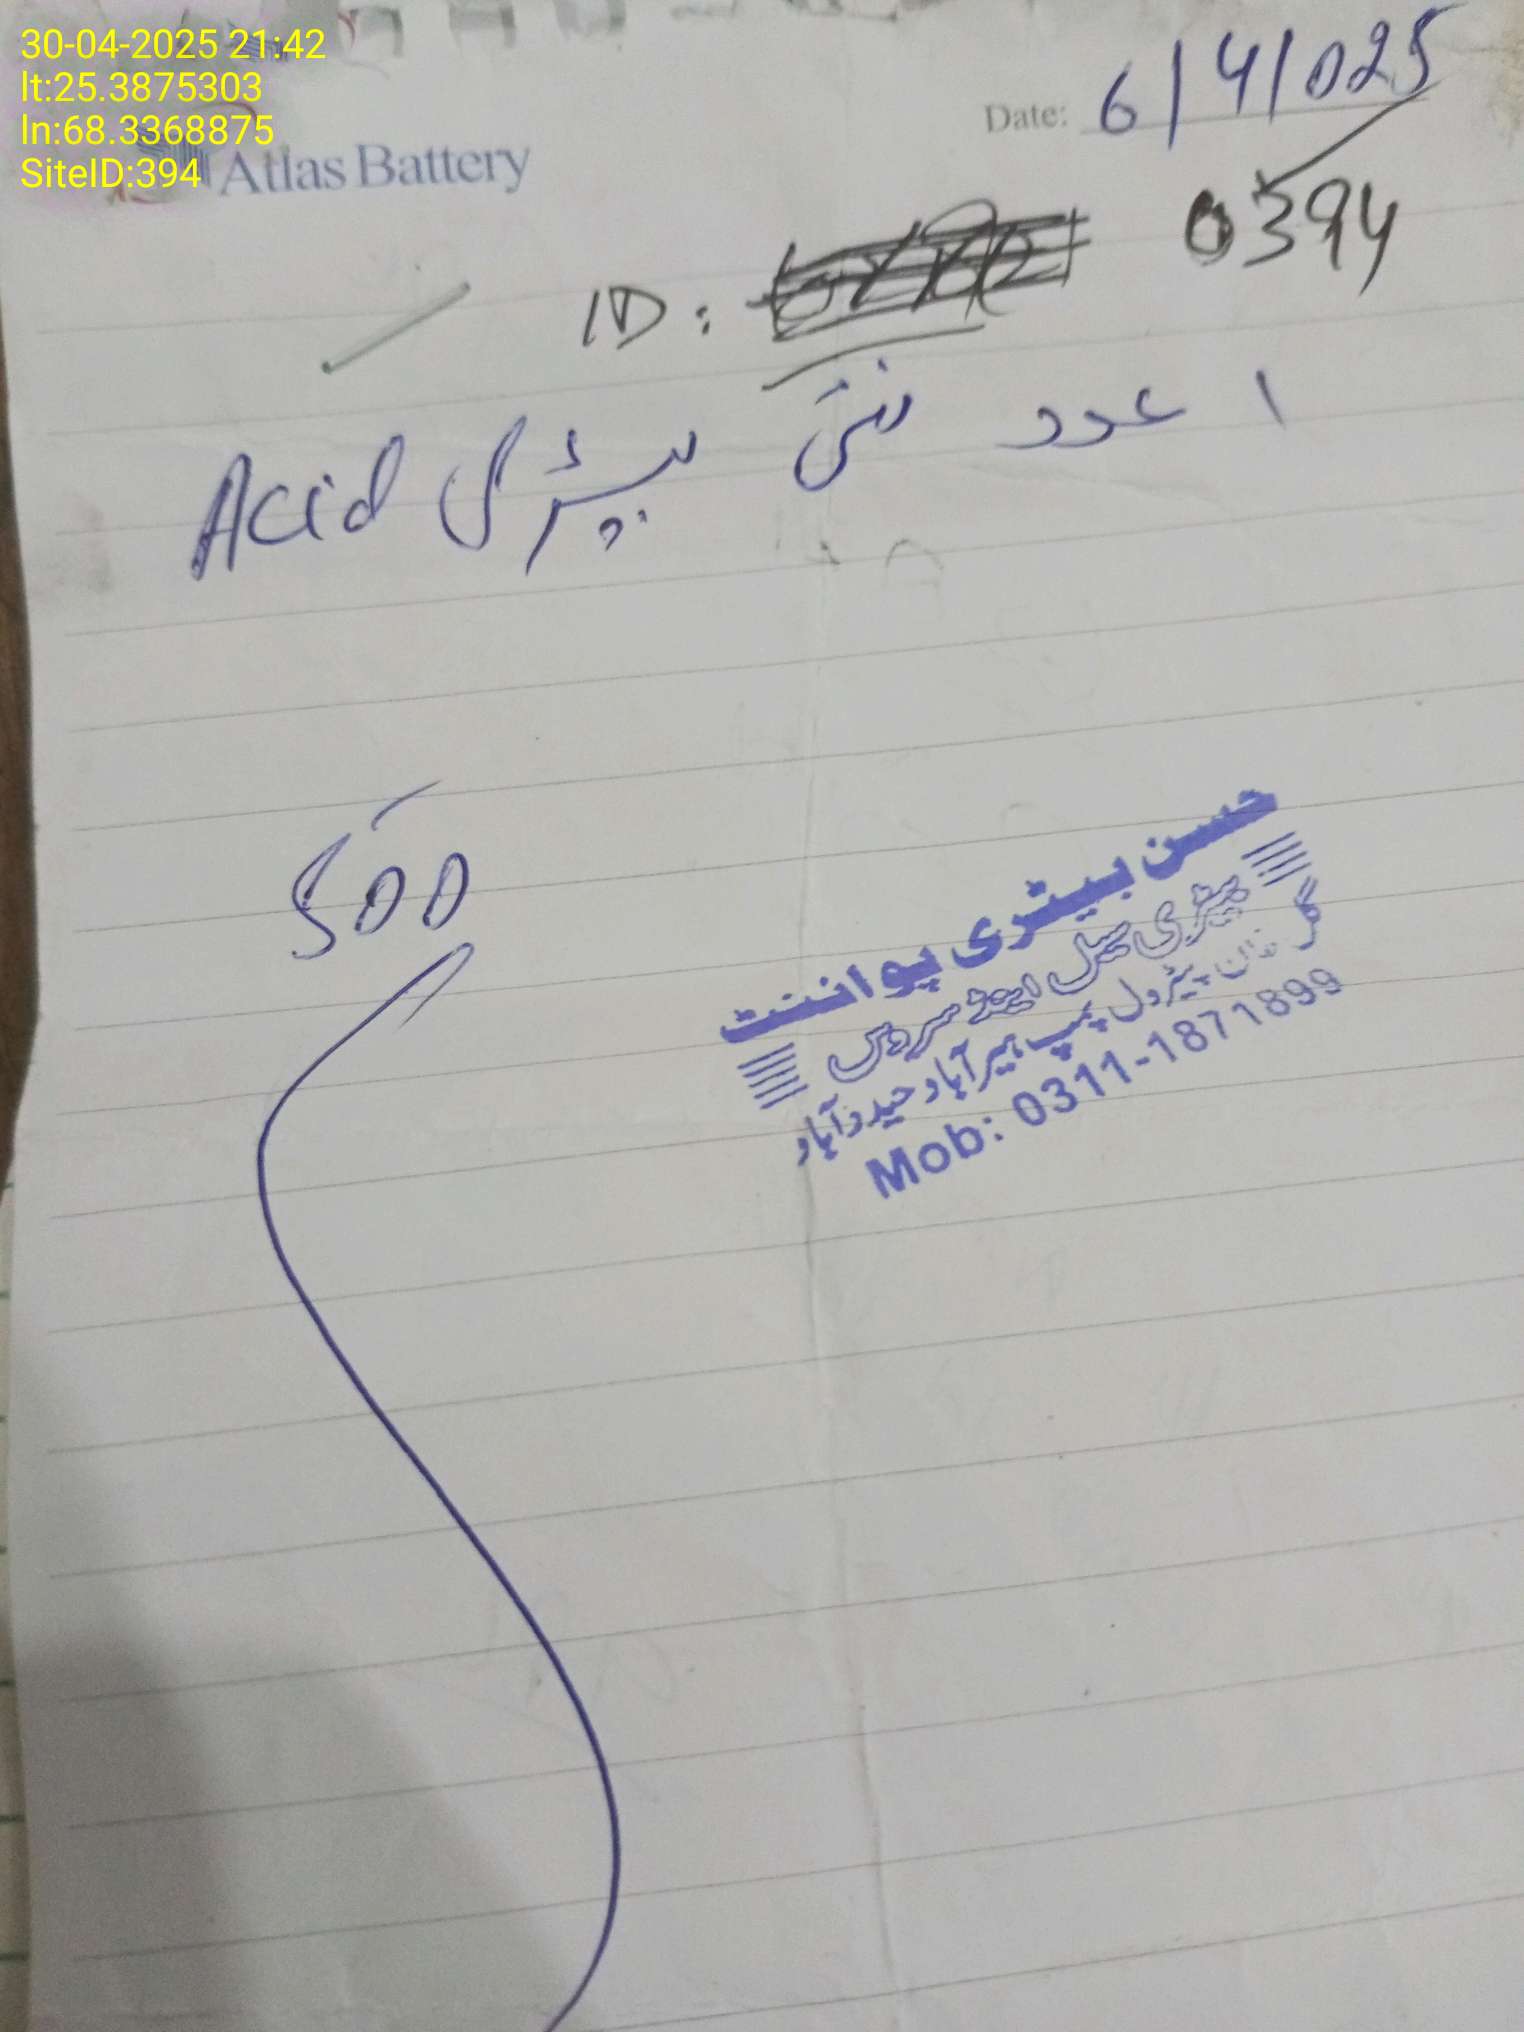 30-04-2025 21:42
lt:25.3875303
ln:68.3368875
SiteID:394
Atlas Battery
Date: 6/4/025
ID: 0394
۱ عدد نئی بیٹری Acid
500
حسن بیٹری پوائنٹ
بیٹری سیل اینڈ سروس
پیٹرول پمپ ہیرآباد حیدرآباد
Mob: 0311-1871899